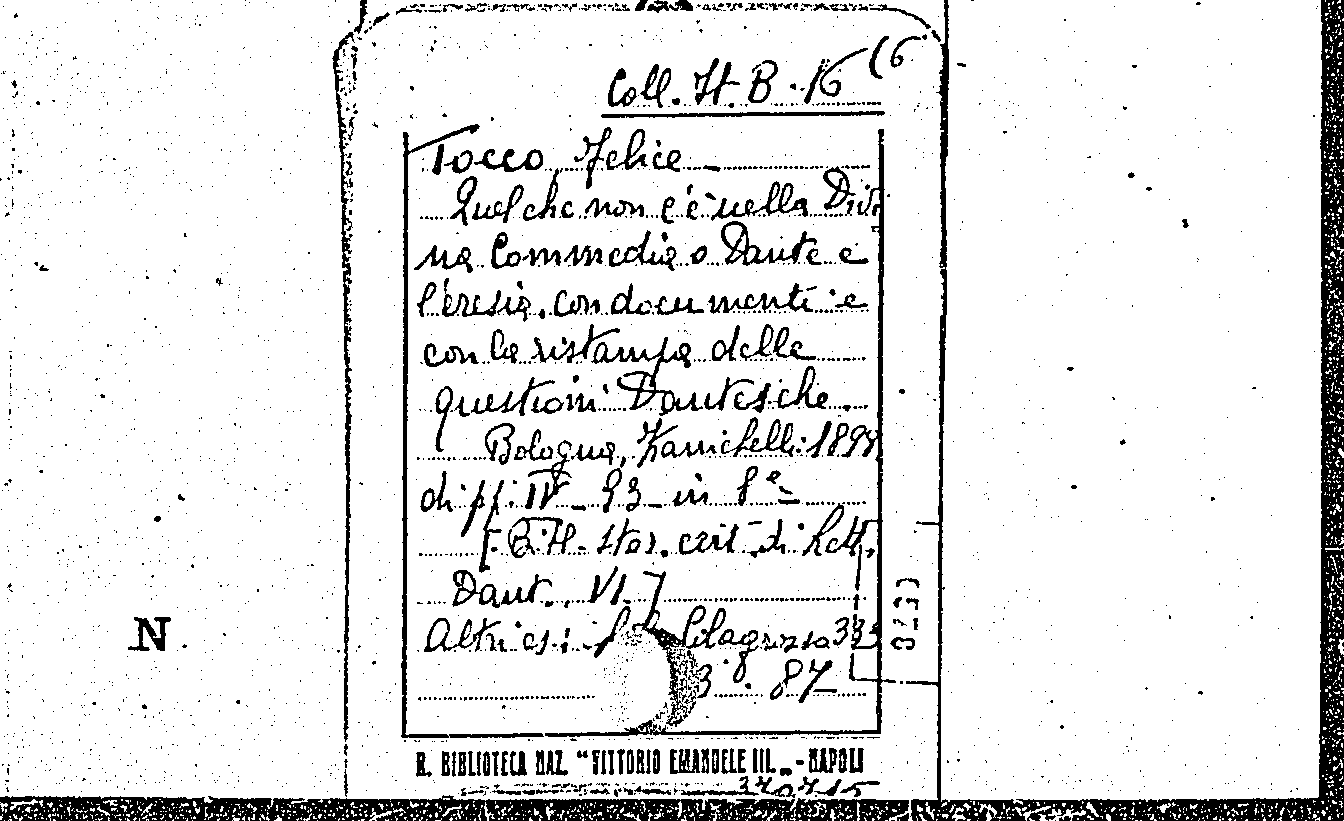 Coll. It. B. 16 (6
Tocco, Felice
Quel che non c'è nella Divi
na Commedia o Dante e
l'eresia. con documenti e
con la ristampa delle
questioni Dantesche.
Bologna, Zanichelli 1899
di pp. IV_ 93_ in 8°_
[B.It. stor. crit. di lett.
Dant. VI.]
Altri es: Villagrossa 333
3.8.87
3233
N
R. BIBLIOTECA NAZ. "VITTORIO EMANUELE III." - NAPOLI